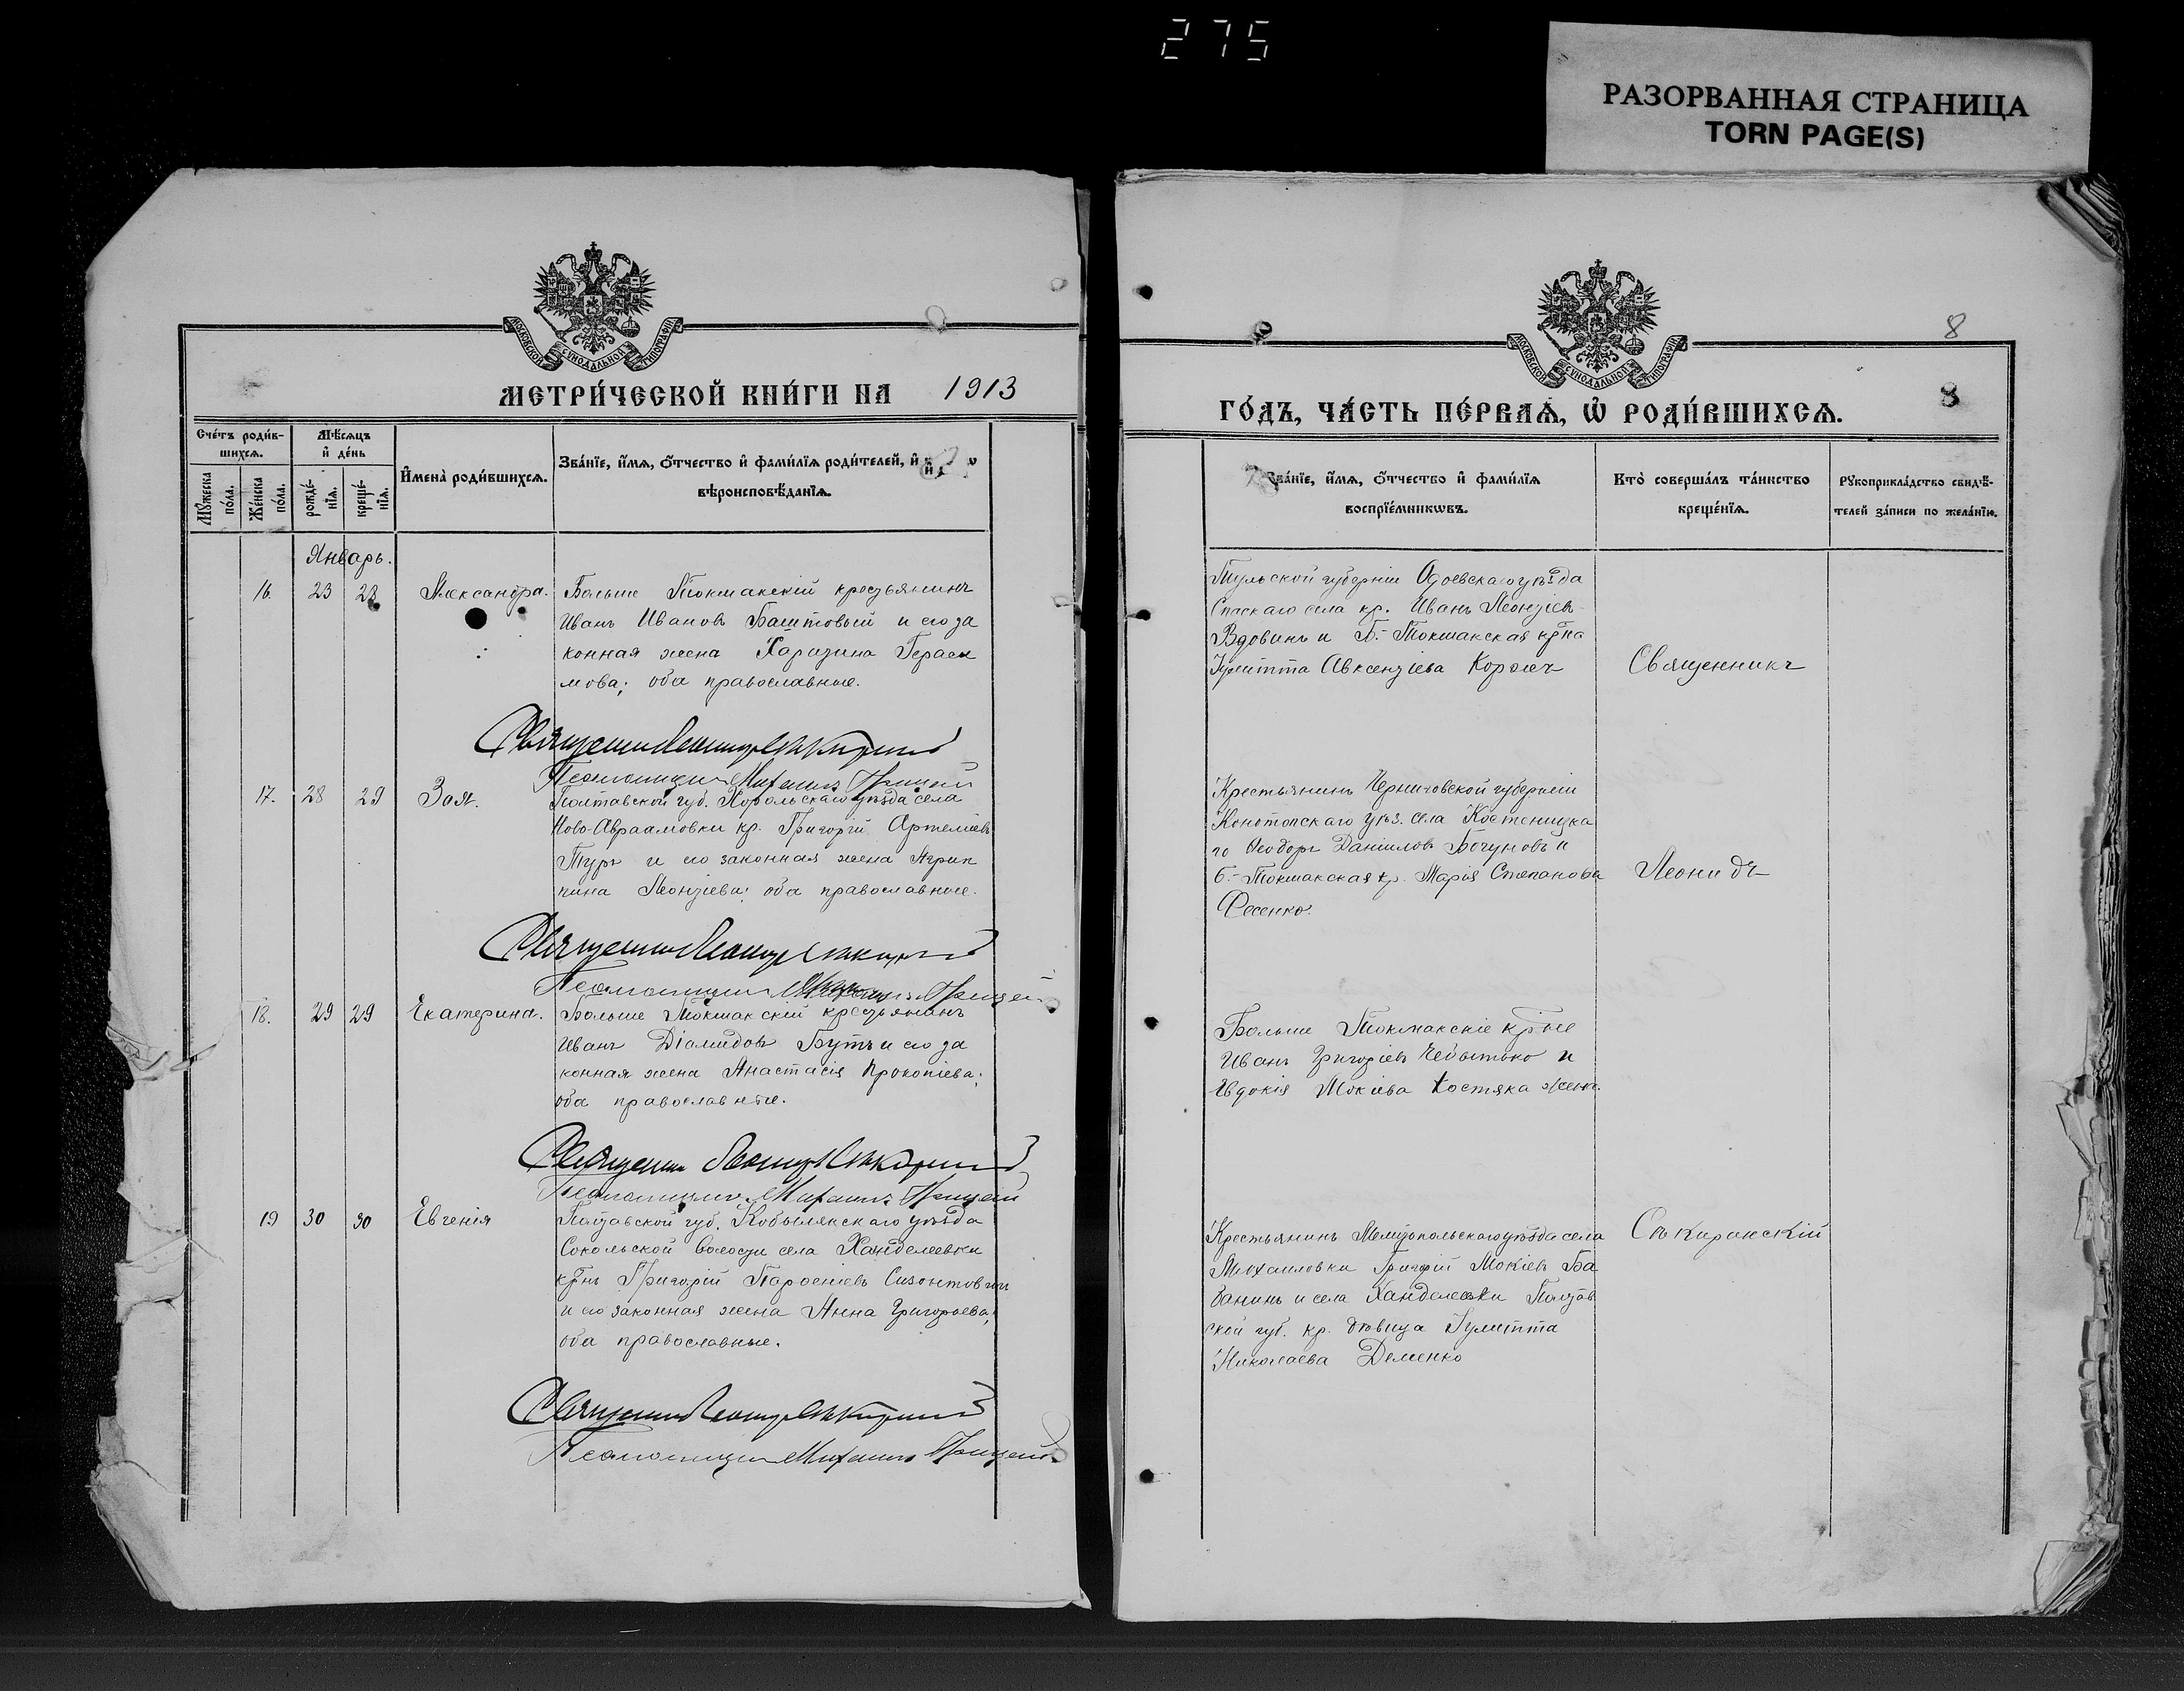 275
РАЗОРВАННАЯ СТРАНИЦА
TORN PAGE(S)
МОСКОВСКОЙ СѴНОДАЛЬНОЙ ТИПОГРАФІИ
МЕТРИ́ЧЕСКОЙ КНИ́ГИ НА 1913
Счётъ роди́в-
шихсѧ.
Мѣ́сѧцъ
и҆ де́нь
Мꙋ́жеска по́ла.
Же́нска по́ла.
рожде́-
нїѧ.
креще́-
нїѧ.
И҆мена̀ роди́вшихсѧ.
Зва́нїе, и҆́мѧ, ѻ҆́тчество и҆ фами́лїѧ роди́телей, и҆
вѣроисповѣ́данїѧ.
Январь.
16. 23 28 Александра.
Больше Токмакскій крестьянинъ
Иванъ Ивановъ Баштовый и его за
конная жена Харитина Герасе
мова; оба православные.
Священникъ Леонидъ Сѣкиранскій
Псаломщикъ Михаилъ Грицай
17. 28 29 Зоя.
Полтавской губ. Хорольскаго уѣзда села
Ново-Авраамовки кр. Григорій Артеміевъ
Туръ и его законная жена Агрип
пина Леонтіева; оба православные.
Священникъ Леонидъ Сѣкиранскій
Псаломщикъ Михаилъ Грицай
18. 29 29 Екатерина.
Больше Токмакскій крестьянинъ
Иванъ Діамидовъ Бутъ и его за
конная жена Анастасія Прокопіева;
оба православные.
Священникъ Леонидъ Сѣкиранскій
Псаломщикъ Михаилъ Грицай
19 30 30 Евгенія
Полтавской губ. Кобылякскаго уѣзда
Сокольской волости села Ханделеевки
кр̃нъ Григорій Парѳеніевъ
и его законная жена Анна Григорьева;
оба православные.
Священникъ Леонидъ Сѣкиранскій
Псаломщикъ Михаилъ Грицай
МОСКОВСКОЙ СѴНОДАЛЬНОЙ ТИПОГРАФІИ
8
8
ГО́ДЪ, ЧА́СТЬ ПЕ́РВАѦ, Ѡ҆ РОДИ́ВШИХСѦ.
Зва́нїе, и҆́мѧ, ѻ҆́тчество и҆ фами́лїѧ
воспрїе́мникѡвъ.
Кто̀ соверша́лъ та́инство
креще́нїѧ.
Рꙋкоприкла́дство свидѣ́-
телей за́писи по жела́нїю.
Тульской губерніи Одоевскаго уѣзда
Спасскаго села кр. Иванъ Леонтіевъ
Вдовинъ и Б.-Токмакская кр̃на
Іулитта Авксентіева Король
Священникъ
Крестьянинъ Черниговской губерніи
Конотопскаго уѣз. села
го Ѳеодоръ Даніиловъ Богуновъ и
Б.-Токмакская кр. Марія Степанова
Фесенко.
Леонидъ
Больше Токмакскіе кр̃не
Иванъ Григоріевъ и
Евдокія Мокіева Костяка жена.
Крестьянинъ Мелитопольскаго уѣзда села
Михаиловки Григорій Мокіевъ Ба
банинъ и села Ханделеевки Полтав
ской губ. кр. дѣвица Іулитта
Николаева Деменко
Сѣкиранскій